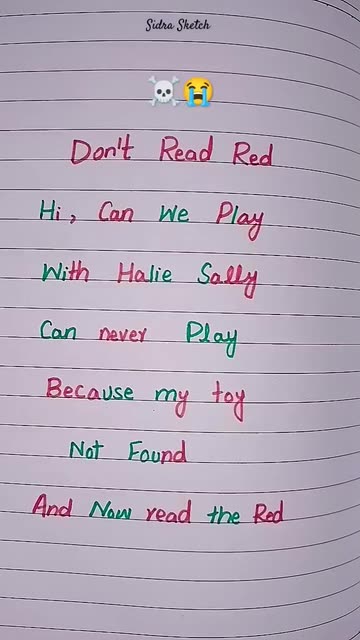 Sidra Sketch
☠️😭
Don't Read Red
Hi, Can We Play
With Halie Sally
Can never Play
Because my toy
Not Found
And Now read the Red